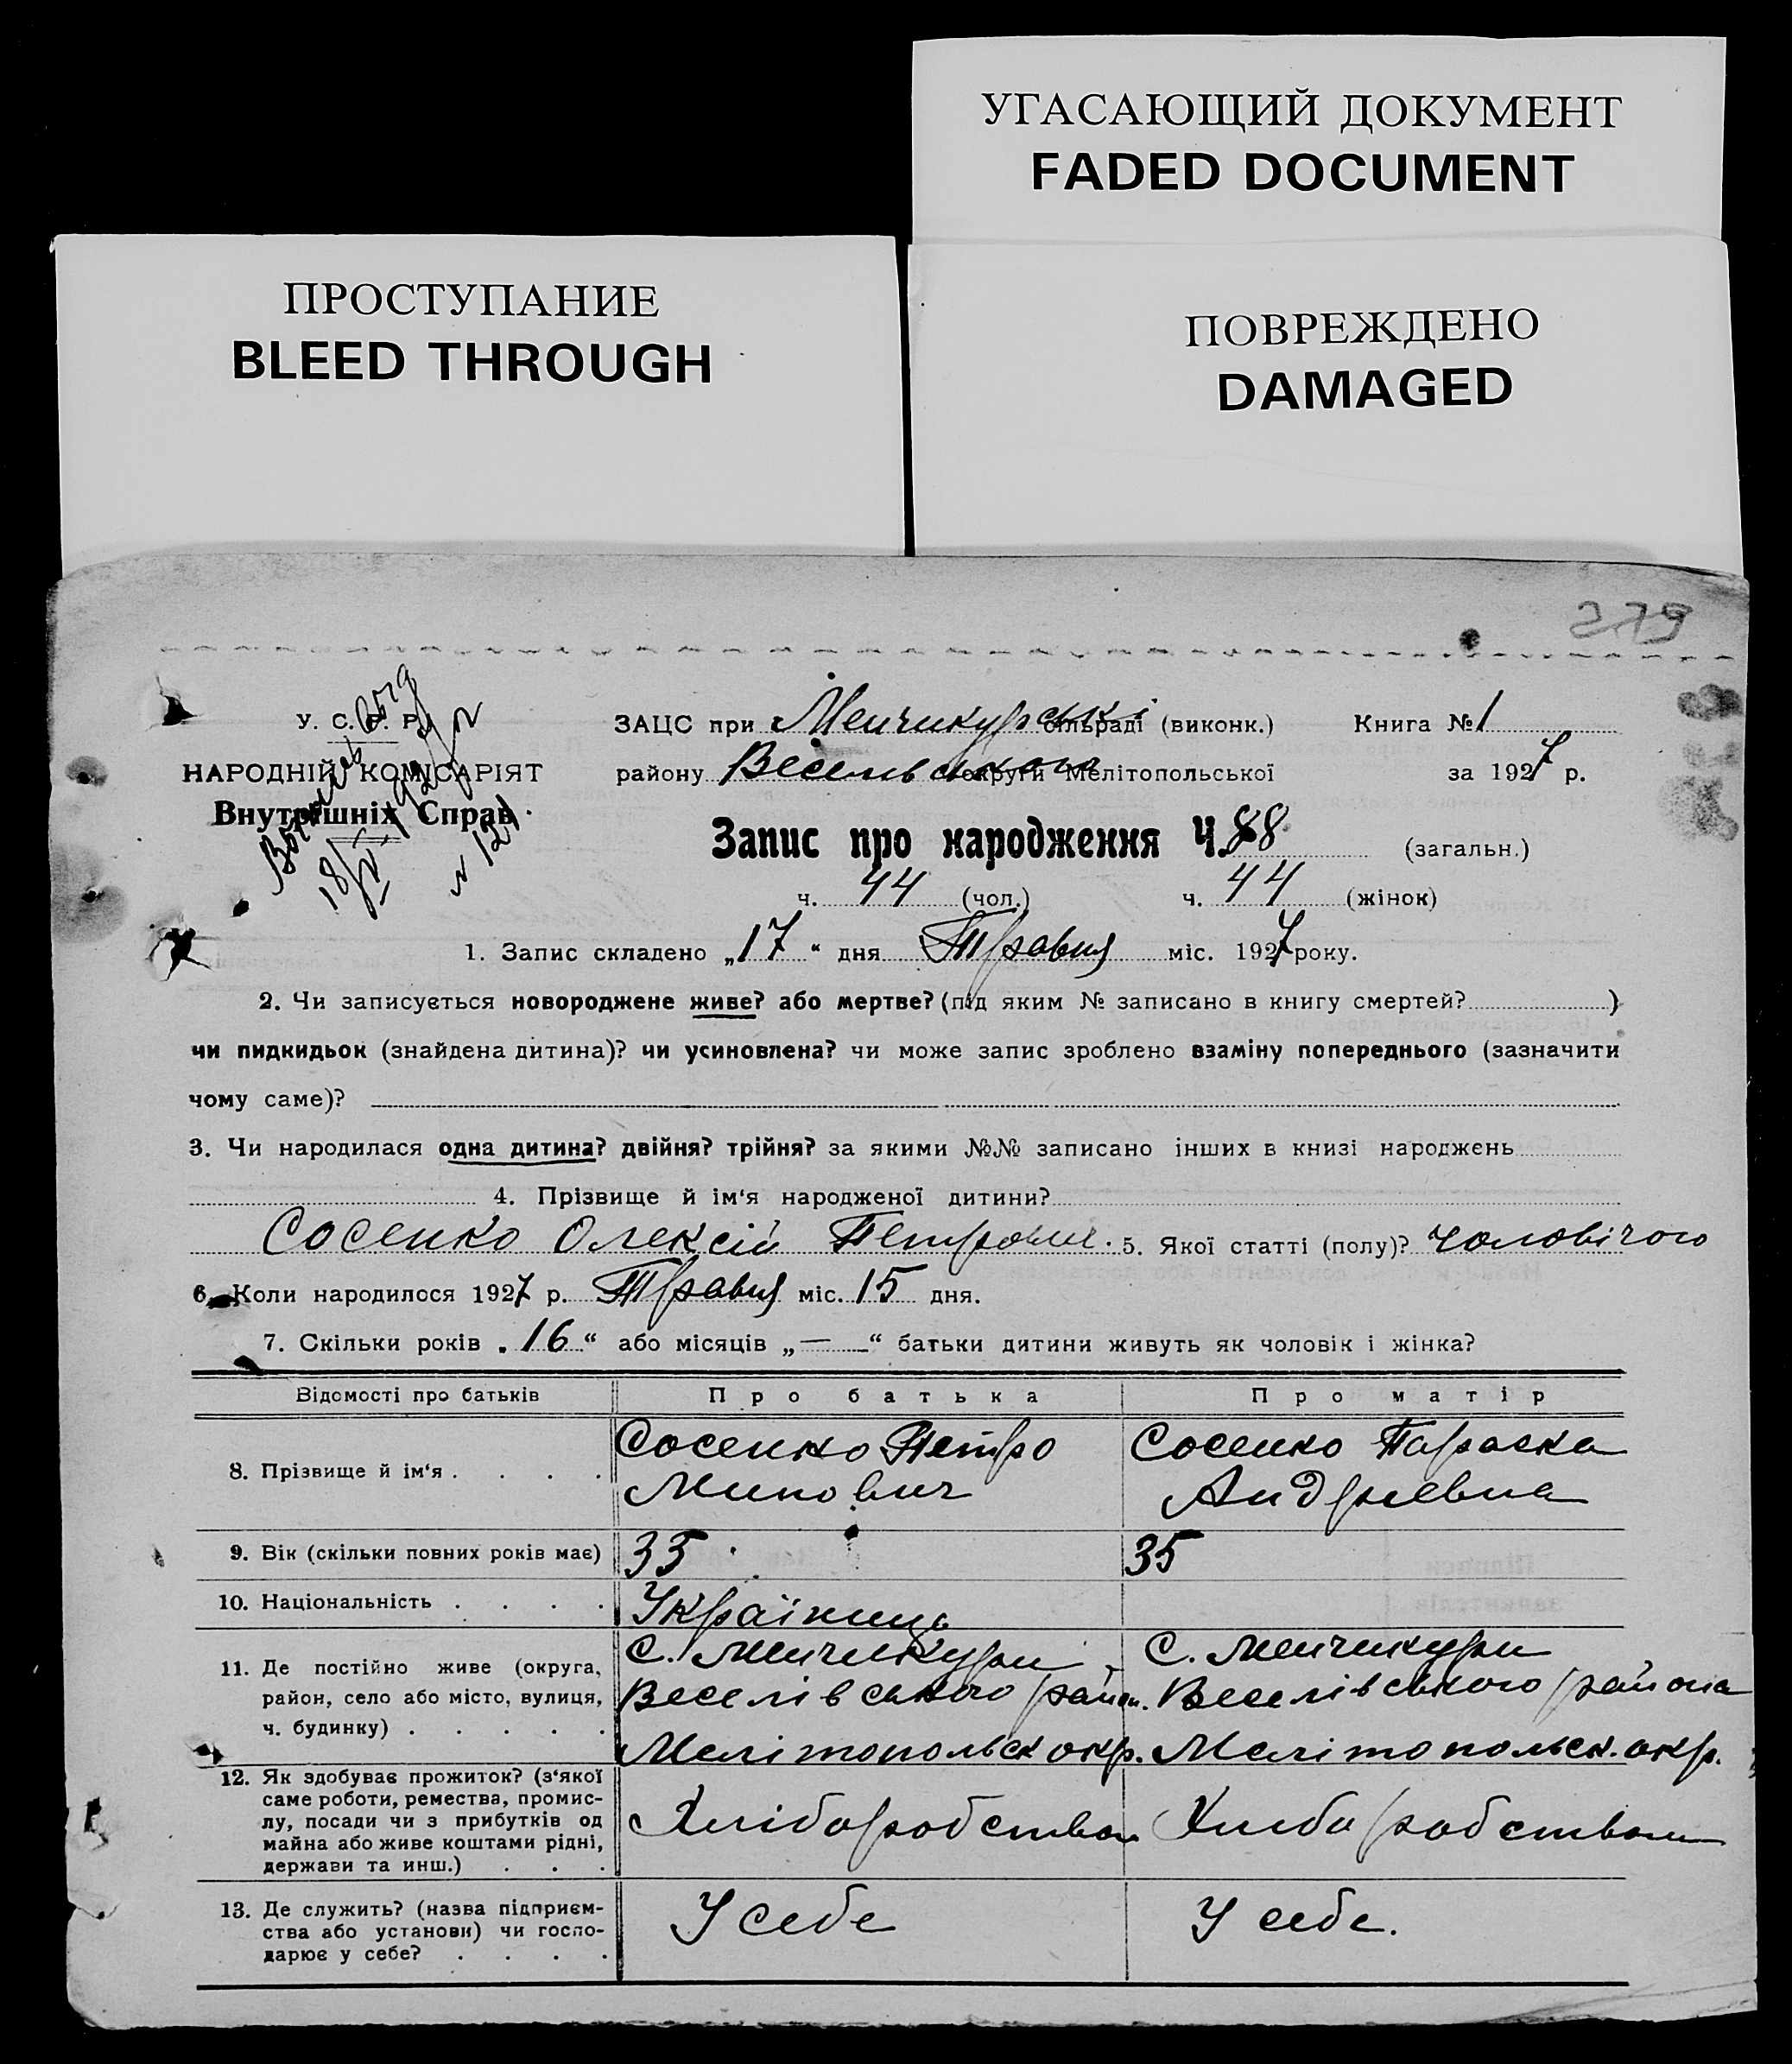 УГАСАЮЩИЙ ДОКУМЕНТ
FADED DOCUMENT
ПРОСТУПАНИЕ
BLEED THROUGH
ПОВРЕЖДЕНО
DAMAGED
279
У. С. Р. Р.
НАРОДНІЙ КОМІСАРІЯТ
Внутрішніх Справ.
18/V 192
№ 121
ЗАЦС при Менчикурські сільраді (виконк.) Книга № 1
району Веселівського округи Мелітопольської за 1927 р.
Запис про народження Ч. 88 (загальн.)
ч. 44 (чол.) ч. 44 (жінок)
1. Запис складено „17“ дня Травня міс. 1927 року.
2. Чи записується новороджене живе? або мертве? (під яким № записано в книгу смертей? )
чи пидкидьок (знайдена дитина)? чи усиновлена? чи може запис зроблено взаміну попереднього (зазначити
чому саме)?
3. Чи народилася одна дитина? двійня? трійня? за якими №№ записано інших в книзі народжень
4. Прізвище й ім‘я народженої дитини?
Сосенко Олексій Петрович. 5. Якої статті (полу)? чоловічого
6. Коли народилося 1927 р. Травня міс. 15 дня.
7. Скільки років „16“ або місяців „—“ батьки дитини живуть як чоловік і жінка?
Відомості про батьків Про батька Про матір
8. Прізвище й ім‘я . . . . Сосенко Петро Сосенко Параска
Минович Андриевна
9. Вік (скільки повних років має) 35 35
10. Національність . . . . Українець
11. Де постійно живе (округа, район, село або місто, вулиця, ч. будинку) . . . . .
С. Менчикури С. Менчикури
Веселівського район. Веселівського района
Мелітопольск окр. Мелітопольск. окр.
12. Як здобуває прожиток? (з‘якої
саме роботи, ремества, промис-
лу, посади чи з прибутків од
майна або живе коштами рідні,
держави та инш.) . . .
Хліборобством Хлиборобством
13. Де служить? (назва підприєм-
ства або установи) чи госпо-
дарює у себе? . . . .
У себе У себе.